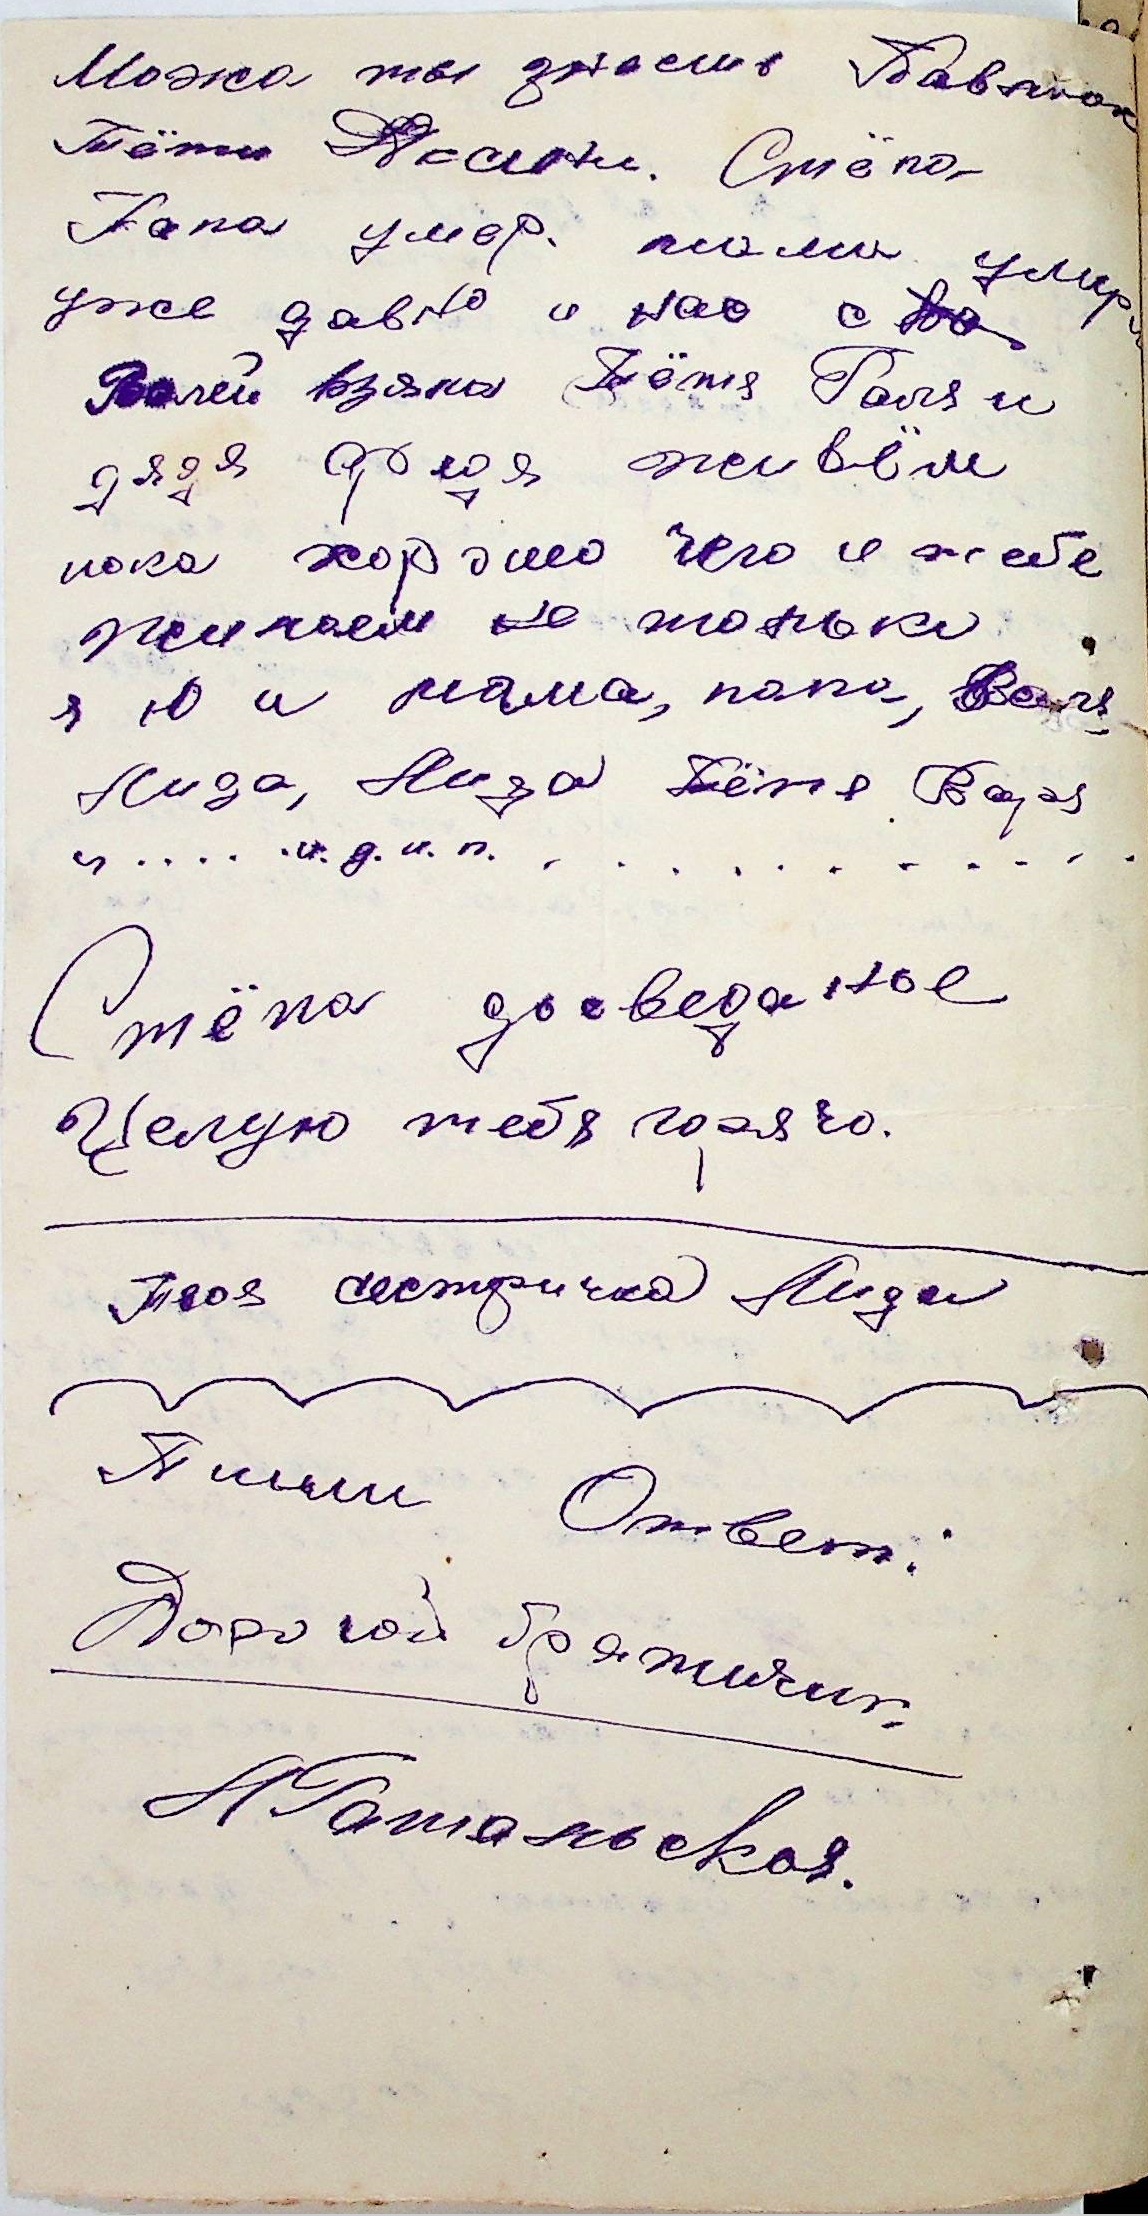 Можа ты знаешь Павлик
Тёти Ксини. Стёпа
Папа умер. мама умир
уже давно и нас с
Валей взяла Тётя Галя и
дядя Федя живём
пока хорошо чего и тебе
желаем не только
я но и мама, папа, Валя
Лида, Лида Тётя Варя
и .... и.д.и.п. . . . . . . . . . .
Стёпа досведанье
Целую тебя горячо.
твоя сестричка Лида
Пиши Ответ:
Дорогой братичик